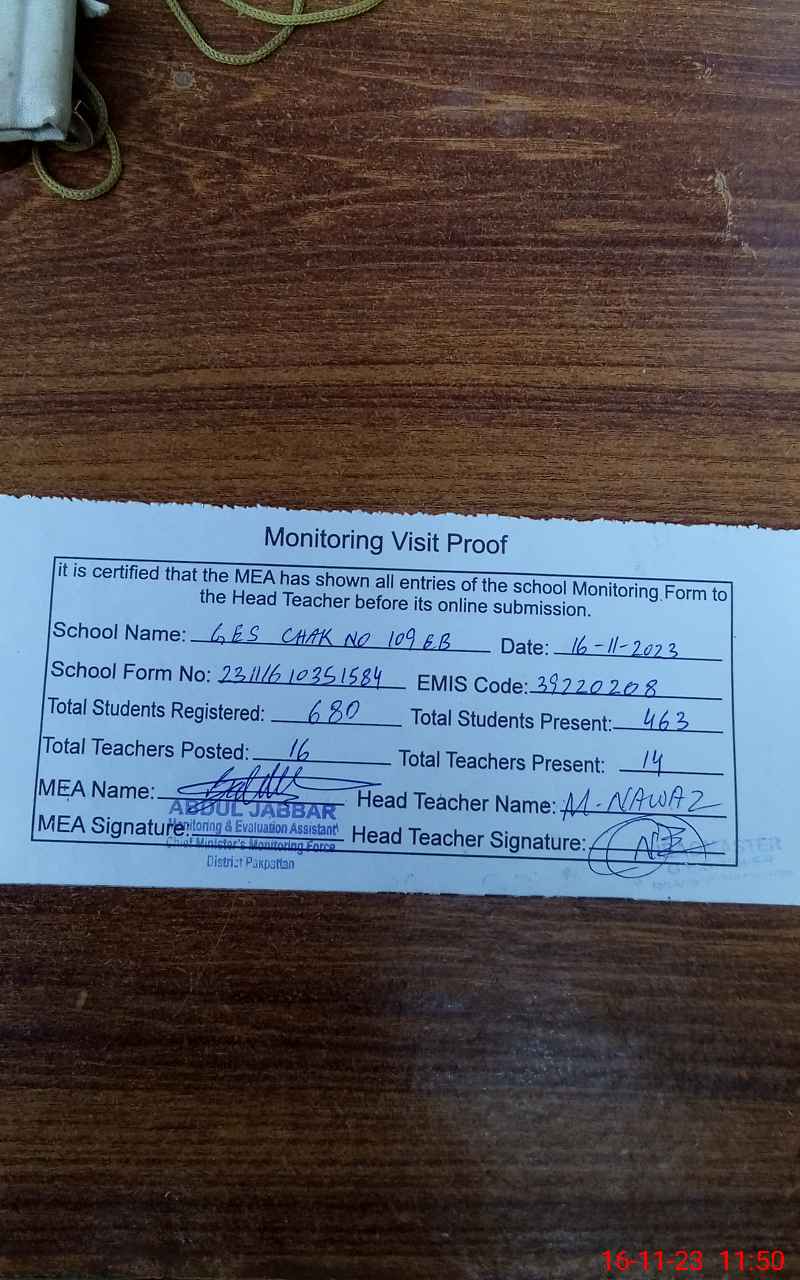 Monitoring Visit Proof
it is certified that the MEA has shown all entries of the school Monitoring Form to
the Head Teacher before its online submission.
School Name: GES CHAK NO 109 EB Date: 16-11-2023
School Form No: 23111610351584 EMIS Code: 39220208
Total Students Registered: 680 Total Students Present: 463
Total Teachers Posted: 16 Total Teachers Present: 14
MEA Name: Head Teacher Name: M-NAWAZ
ABDUL JABBAR
Monitoring & Evaluation Assistant
MEA Signature: Head Teacher Signature:
Chief Minister's Monitoring Force
District Pakpattan
16-11-23 11:50